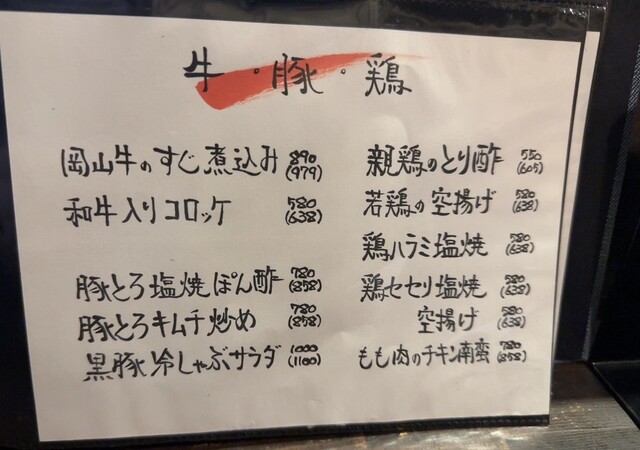 牛・豚・鶏
岡山牛のすじ煮込み 890 (979)
和牛入りコロッケ 580 (638)
豚とろ塩焼ぽん酢 780 (858)
豚とろキムチ炒め 780 (858)
黒豚冷しゃぶサラダ 1000 (1100)
親鶏のとり酢 550 (605)
若鶏の空揚げ 580 (638)
鶏ハラミ塩焼 580 (638)
鶏セセリ塩焼 580 (638)
空揚げ 580 (638)
もも肉のチキン南蛮 780 (858)